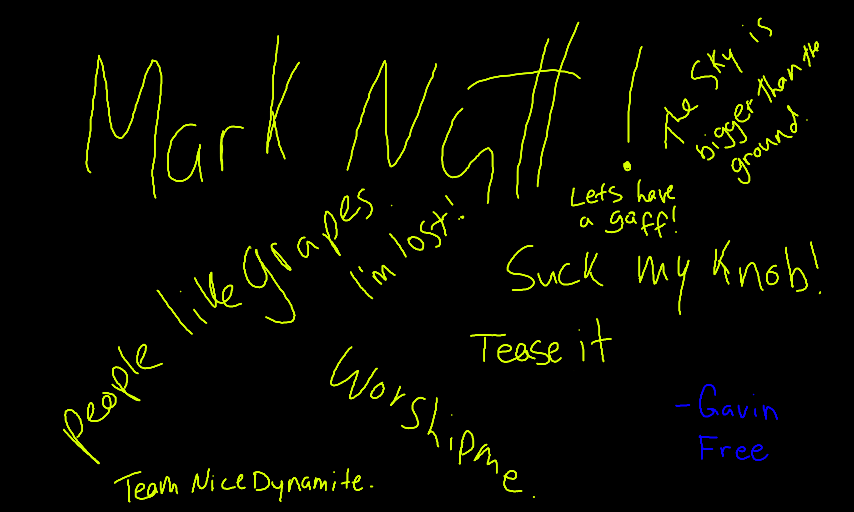 Mark Nutt!
The Sky is
bigger than the
ground.
Lets have
a gaff!
people like grapes.
I'm lost!
Suck my Knob!
Tease it
Worship me.
Team Nice Dynamite.
- Gavin
Free